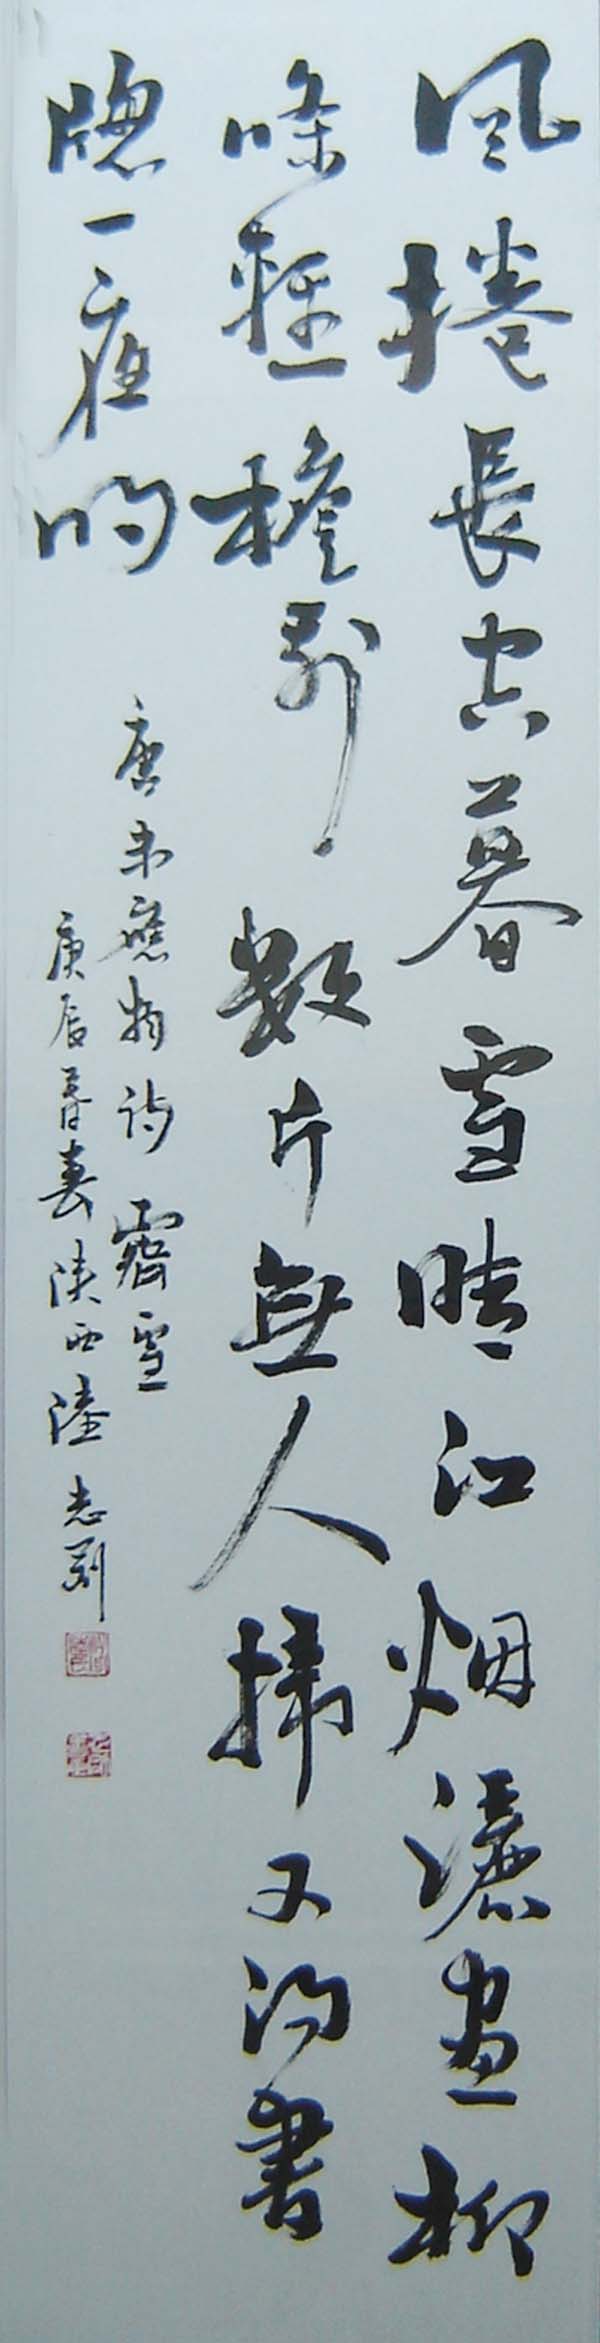 風捲長空暮雪晴江烟灑盡柳
條輕檐前數片無人掃又得書
牕一夜明
唐韋應物詩霽雪
庚辰暮春陝西陸志剛